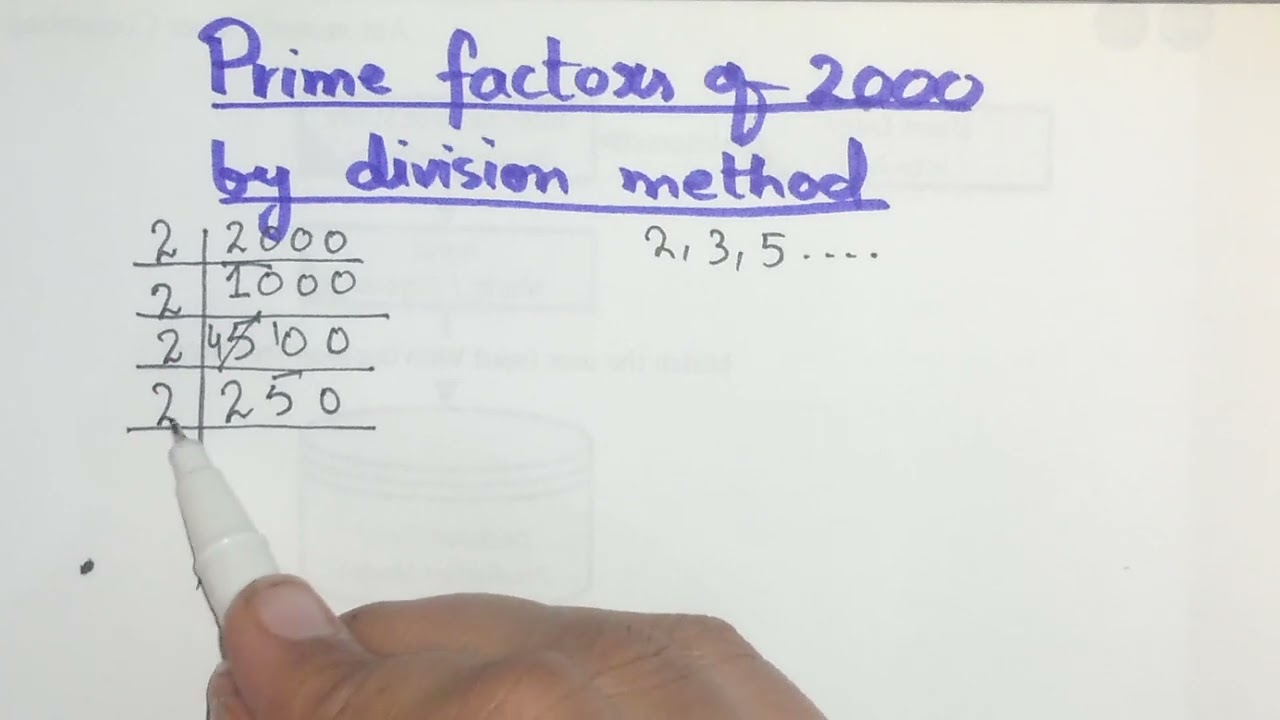 Prime factors of 2000
by division method
2, 3, 5 . . . .
2 | 2000
2 | 1000
2 | 45 100
2 | 250